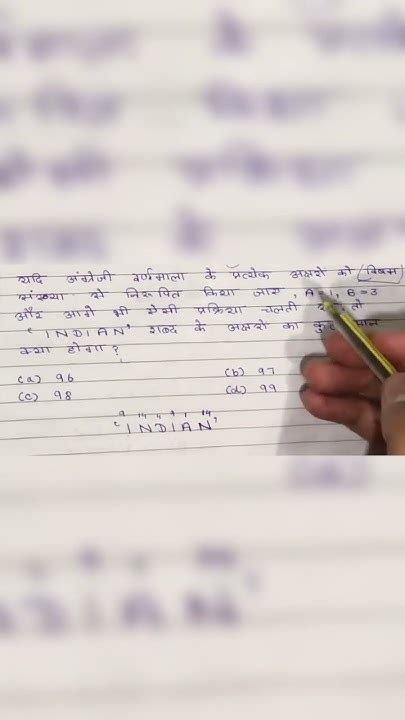 यदि अंग्रेजी वर्णमाला के प्रत्येक अक्षरो को (विषम)
संख्या से निरूपित किया जाए, A = 1, B = 3
और आगे भी ऐसी प्रक्रिया चलती तो
'INDIAN' शब्द के अक्षरो का कुल मान
क्या होगा?
(a) 96 (b) 97
(c) 98 (d) 99
9 14 4 9 1 14
'INDIAN'